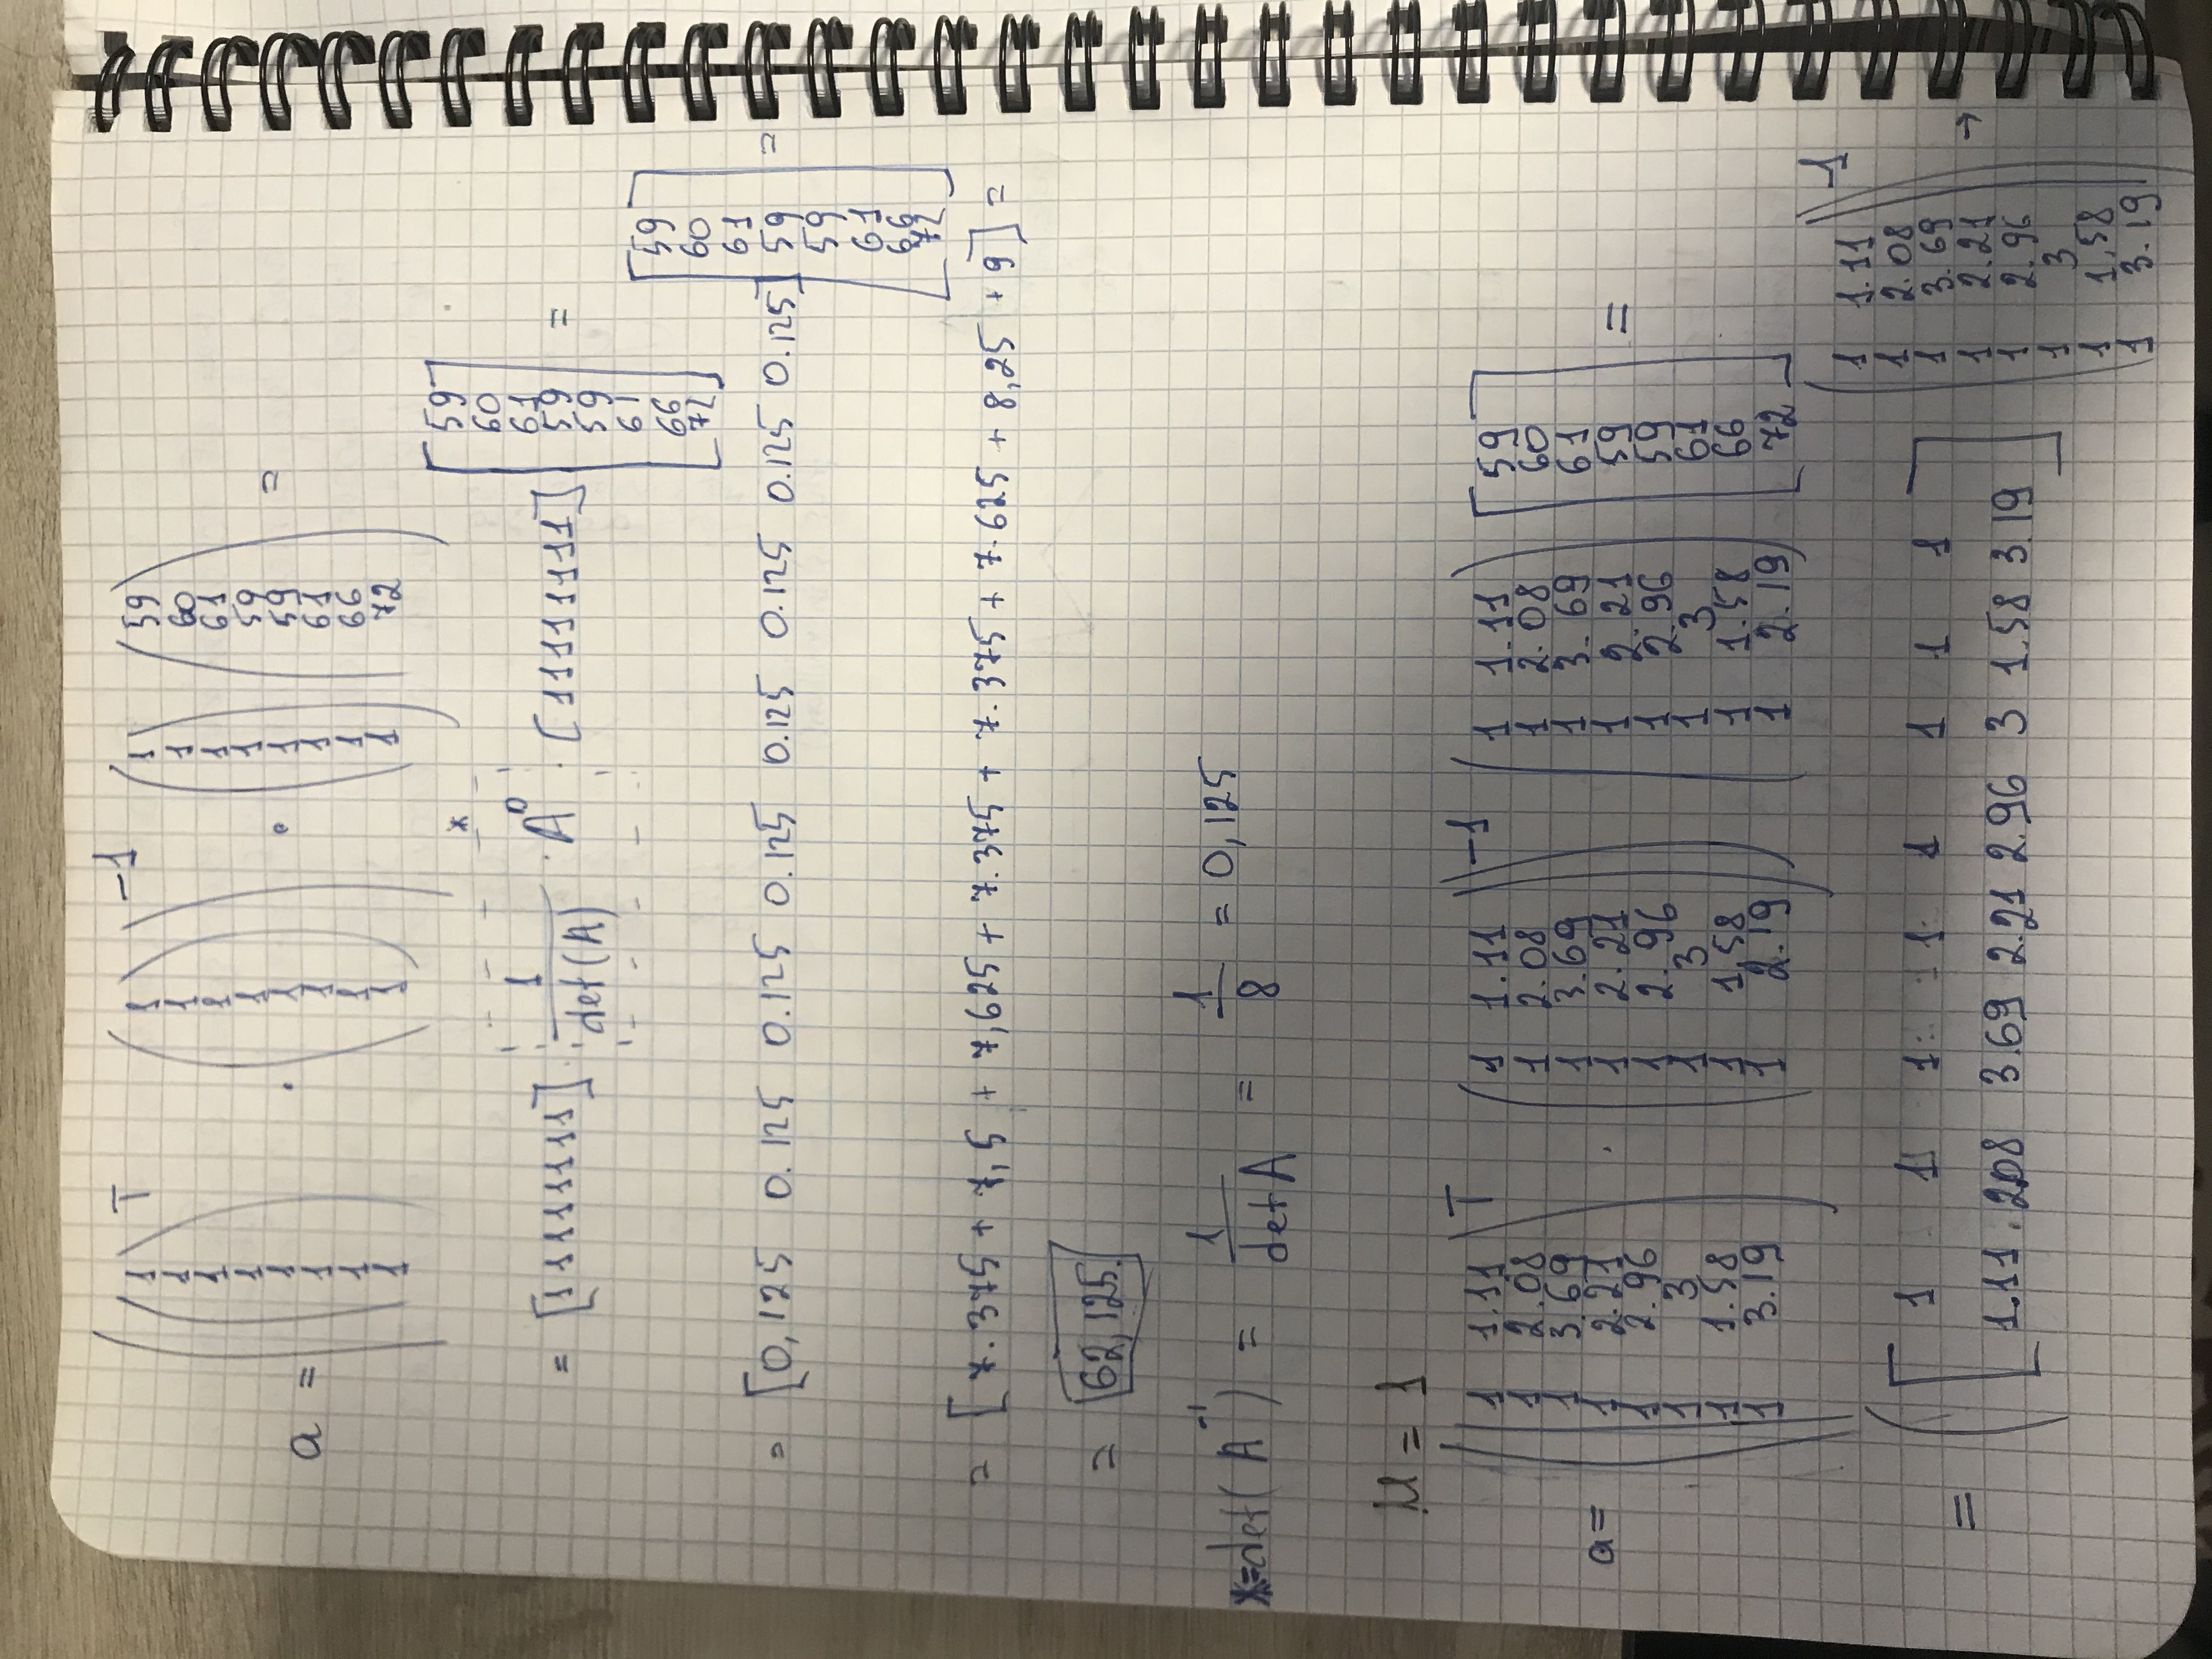 a = ((1 1 1 1 1 1 1 1)^T · (1 1 1 1 1 1 1 1))^-1 · (1 1 1 1 1 1 1 1) (59 60 61 59 59 61 66 72) =
= [1 1 1 1 1 1 1 1] · 1/det(A) · A^0 * · [1 1 1 1 1 1 1 1] [59 60 61 59 59 61 66 72] =
= [0,125 0.125 0.125 0.125 0.125 0.125 0.125 0.125] [59 60 61 59 59 61 66 72] =
= [7.375 + 7,5 + 7,625 + 7.375 + 7.375 + 7.625 + 8,25 + 9] =
= 62,125.
* = det(A^-1) = 1/det A = 1/8 = 0,125
M = 1
a = ((1 1.11 1 2.08 1 3.69 1 2.21 1 2.96 1 3 1 1.58 1 3.19)^T · (1 1.11 1 2.08 1 3.69 1 2.21 1 2.96 1 3 1 1,58 1 2.19))^-1 (1 1.11 1 2.08 1 3.69 1 2.21 1 2.96 1 3 1 1.58 1 2.19) [59 60 61 59 59 61 66 72] =
= ([1 1 1 1 1 1 1 1
1.11 2,08 3.69 2.21 2.96 3 1.58 3.19] (1 1.11 1 2.08 1 3.69 1 2.21 1 2.96 1 3 1 1,58 1 3.19))^-1 →